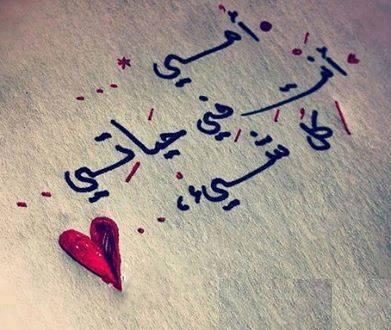 أمي
أنتِ
كل شيء
في حياتي